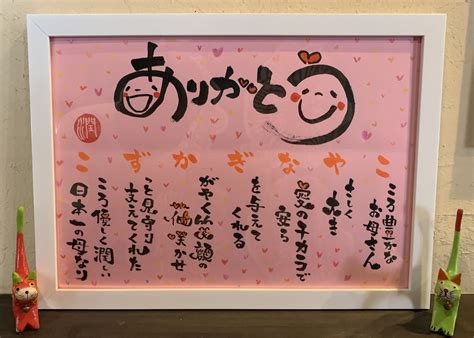 ありがとう
こやなぎかずこ
ころ豊かな
お母さん
さしく
愛のチカラで
安ら
を与えて
くれる
がやく笑顔の
花咲かせ
っと見守り
支えてくれた
ころ優しく潤しい
日本一の母なり